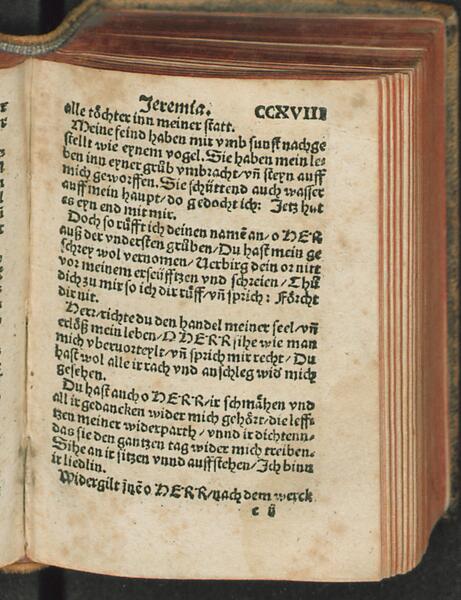 Jeremia. CCXVIII
alle töchter inn meiner statt.
Meine feind haben mir vmb sunst nachge
stellt wie eynem vogel. Sie haben mein le-
ben inn eyner grůb vmbracht/vñ steyn auff
mich geworffen. Sie schüttend auch wasser
auff mein haupt/do gedocht ich: Jetz hat
es eyn end mit mir.
Doch so růfft ich deinen namẽ an/o HER
auß der vndersten grůben/Du hast mein ge
schrey wol vernomen/Uerbirg dein or nitt
vor meinem erseüfftzen vnd schreien/Thů
dich zu mir so ich dir růff/vñ sprich: Förcht
dir nit.
Herr/richte du den handel meiner seel/vñ
erlöß mein leben/O HERR sihe wie man
mich vberuorteylt/vñ sprich mir recht/Du
hast wol alle ir rach vnd anschleg wid mich
gesehen.
Du hast auch o HERR/ir schmähen vnd
all ir gedancken wider mich gehört/die leff-
tzen meiner widerparth/vnnd ir dichtenn-
das sie den gantzen tag wider mich treiben-
Sihe an ir sitzen vnnd auffstehen/Ich binn
ir liedlin.
Widergilt jnẽ o HERR/nach dem werck
e ij